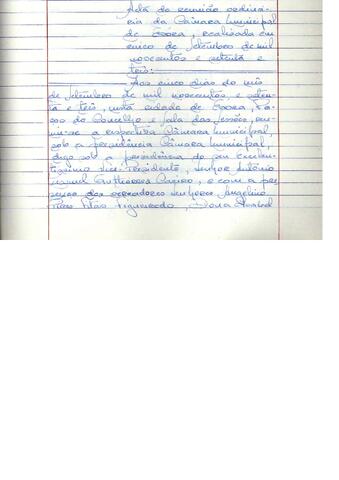 Acta da reunião ordiná-
ria da Câmara Municipal
de Évora, realizada em
cinco de Setembro de mil
novecentos e setenta e
três.
Aos cinco dias do mês
de Setembro de mil novecentos e seten-
ta e três, nesta cidade de Évora, Pa-
ços do Concelho e sala das sessões, reu-
niu-se a respectiva Câmara Municipal,
sob a presidência Câmara Municipal,
digo sob a presidência do seu excelen-
tíssimo Vice-Presidente, senhor António
Manuel, e com a pre-
sença dos vereadores senhores Angelino
Pires Figueiredo, Dona Isabel